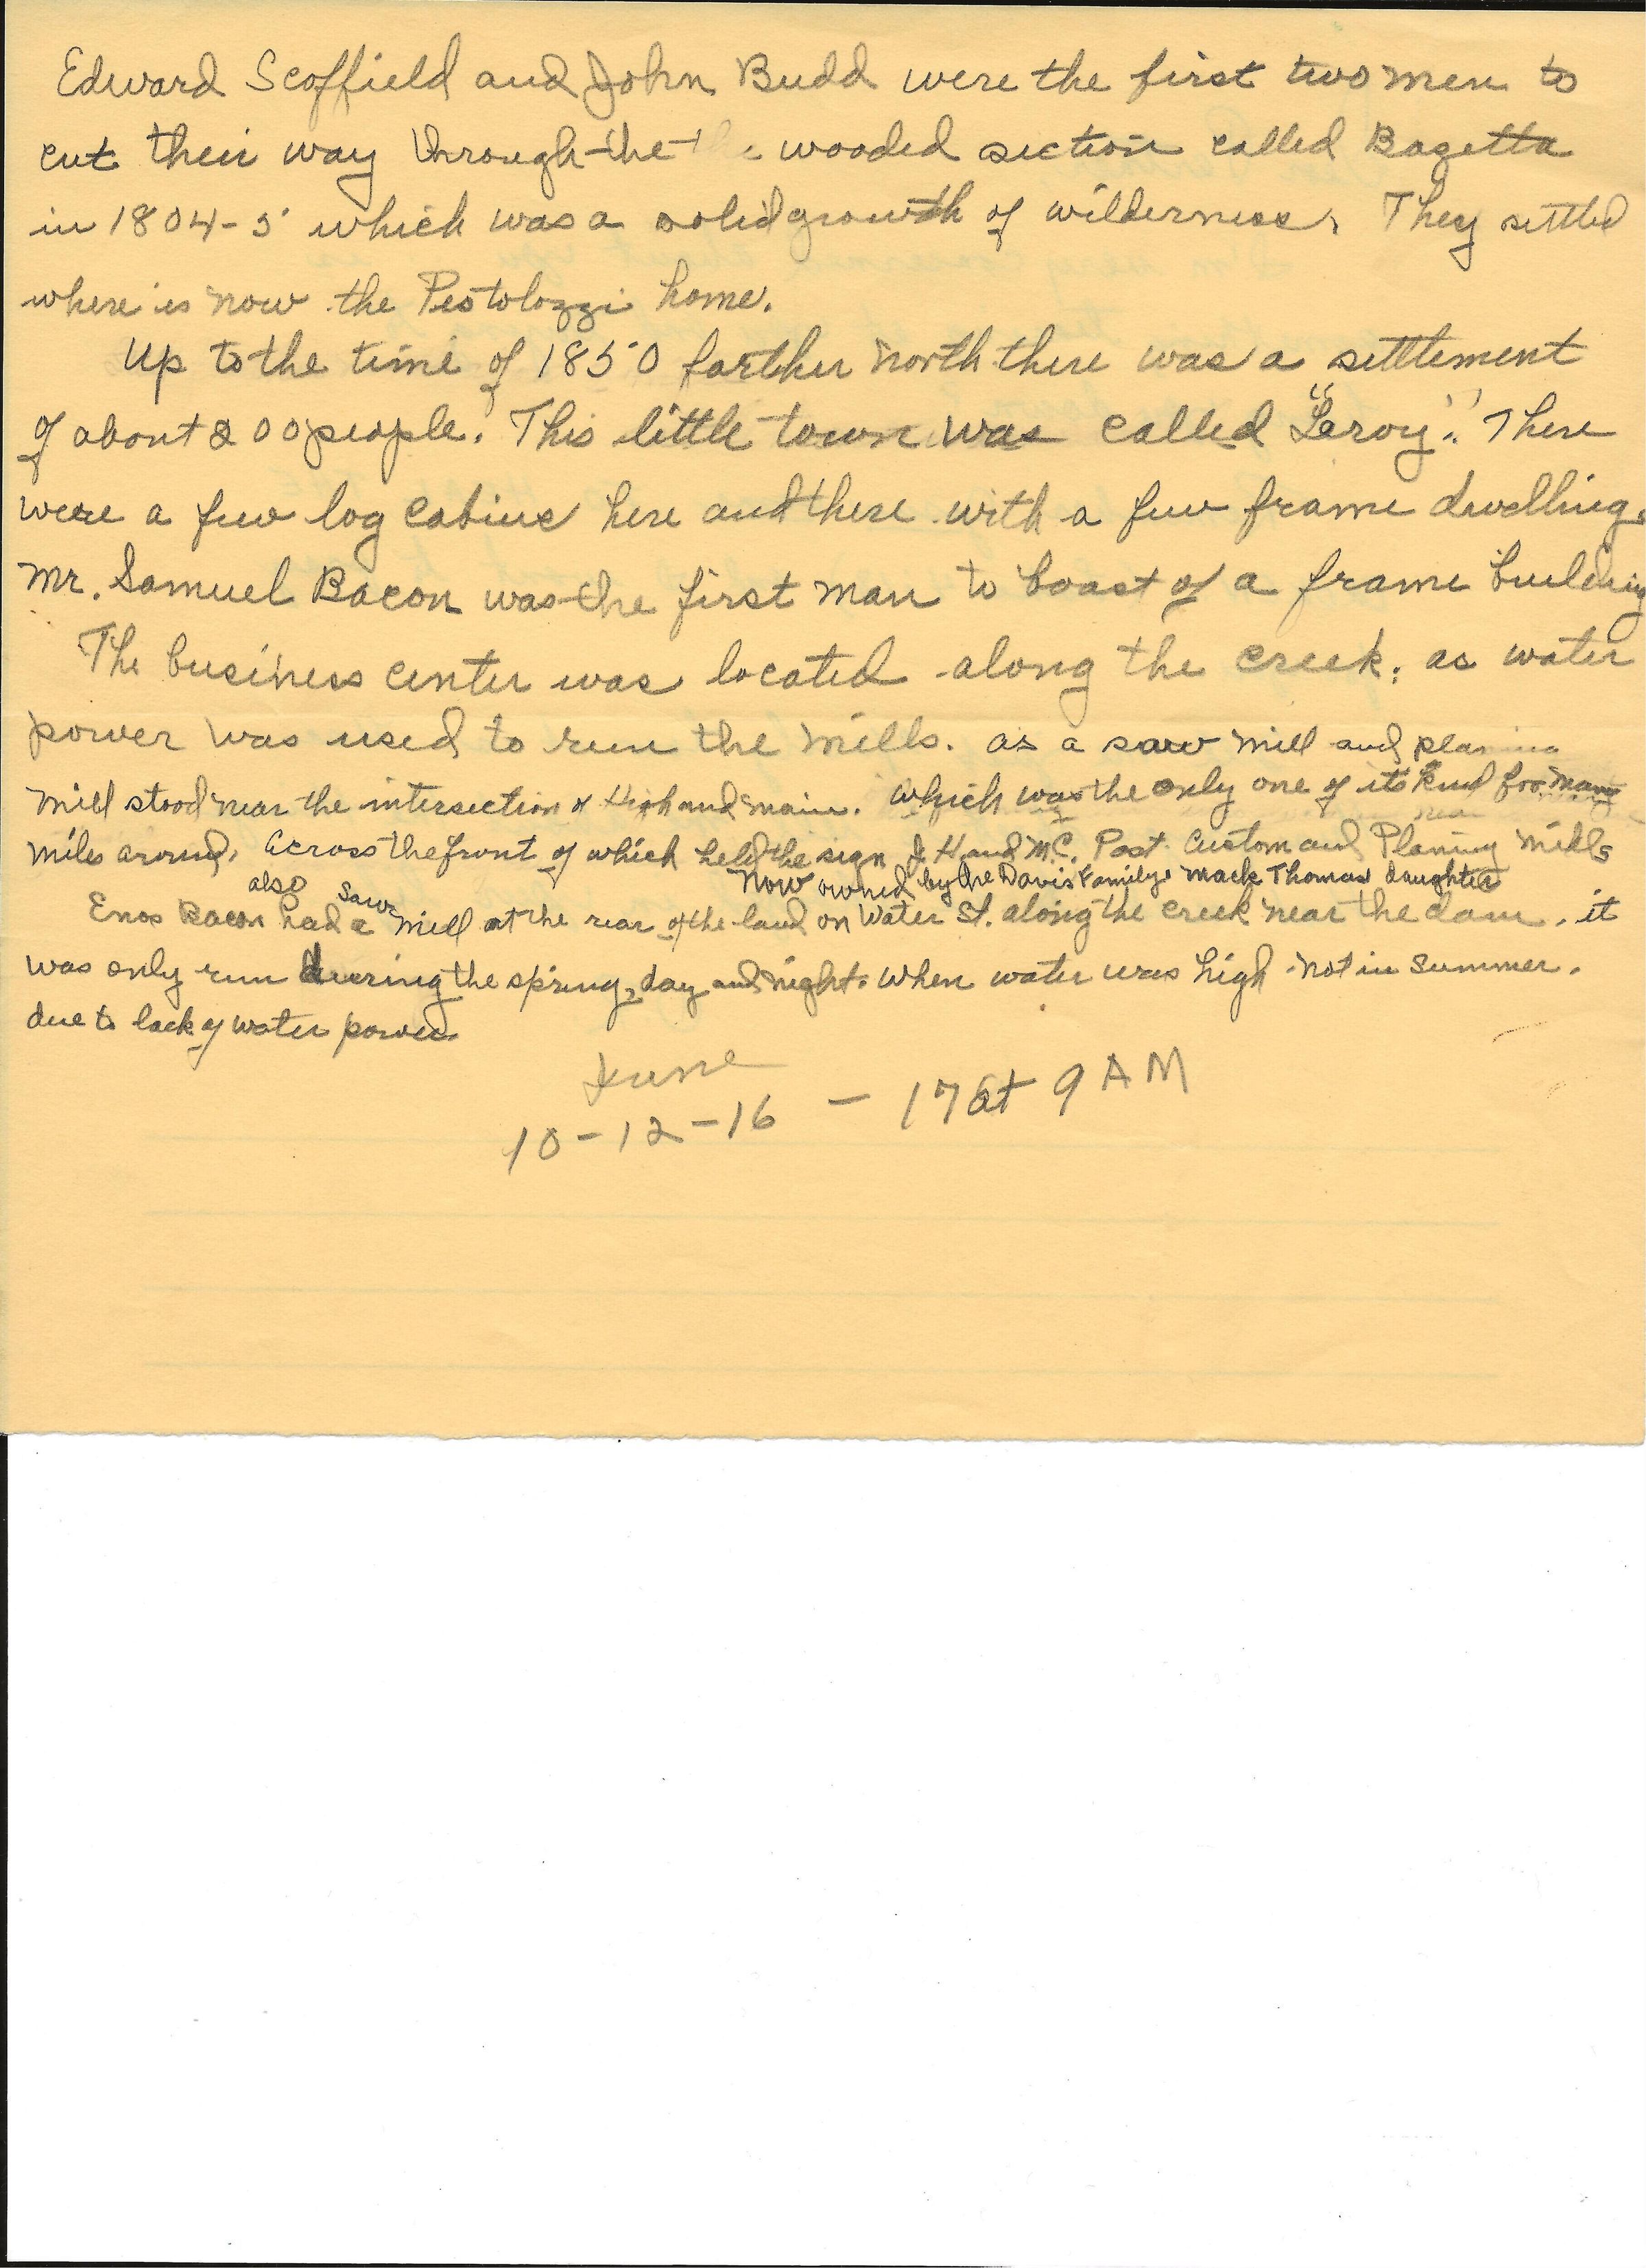 Edward Scoffield and John Budd were the first two men to
cut their way through the wooded section called Bazetta
in 1804-5 which was a solid growth of wilderness. They settled
where is now the Pestolozzi home.
Up to the time of 1850 farther north there was a settlement
of about 200 people. This little town was called "Leroy". There
were a few log cabins here and there with a few frame dwelling.
Mr. Samuel Bacon was the first man to boast of a frame building
The business center was located along the creek, as water
power was used to run the mills. as a saw mill and planing
mill stood near the intersection of High and main. which was the only one of its kind for many
miles around. Across the front of which held the sign J. H and M.C. Post Custom and Planing Mills
Now owned by the Davis Family. Mack Thomas daughter
also saw
Enos Bacon had a mill at the rear of the land on Water St. along the creek near the dam. it
was only run during the spring, day and night. when water was high - not in summer.
due to lack of water power.
June
10-12-16 - 17 at 9 AM